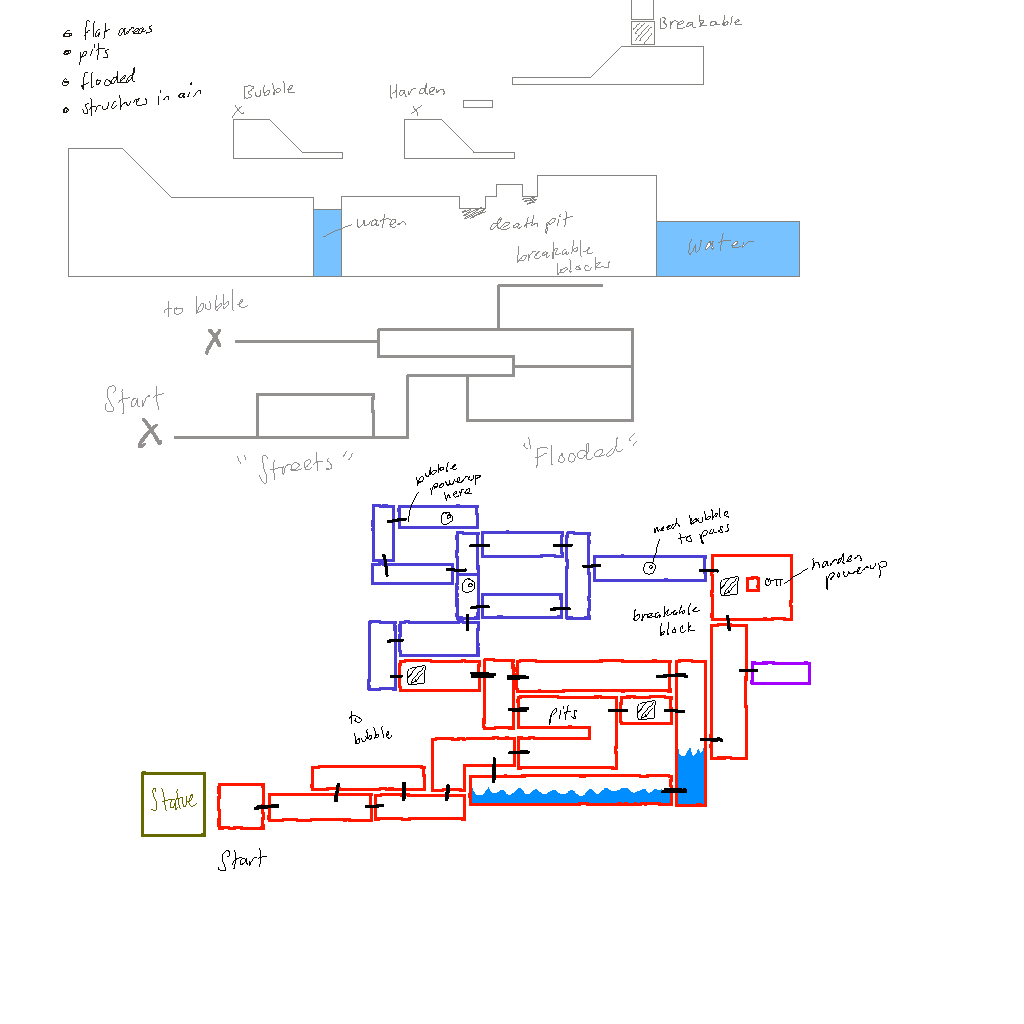 flat areas
pits
flooded
structures in air
Breakable
Bubble
Harden
X
X
water
death pit
breakable
blocks
Water
to bubble
X
Start
X
"Streets"
"Flooded"
bubble
powerup
here
need bubble
to pass
harden
powerup
breakable
block
pits
to
bubble
Statue
Start